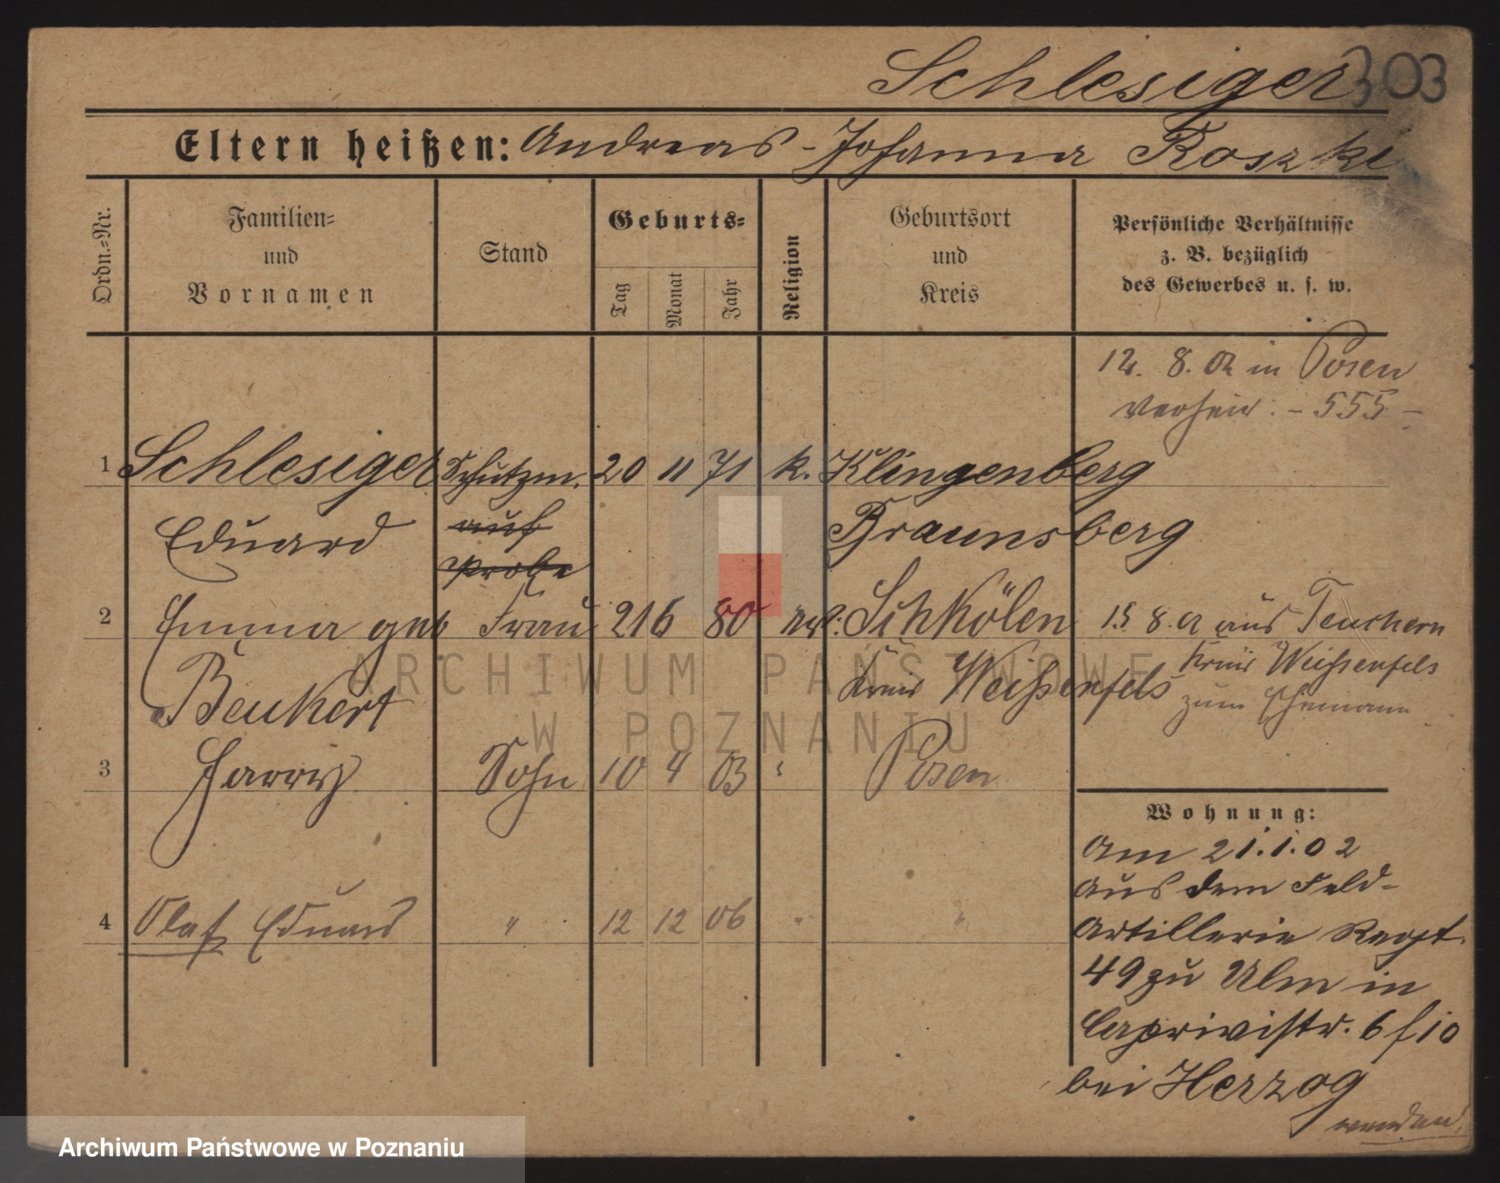 Schlesiger 303
Eltern heißen: Andreas - Johanna Roszki
Ordn.-Nr.
Familien-
und
Vornamen
Stand
Geburts-
Tag
Monat
Jahr
Religion
Geburtsort
und
Kreis
Persönliche Verhältnisse
z. B. bezüglich
des Gewerbes u. s. w.
12. 8. 02 in Posen
verheir. - 555 -
1 Schlesiger Schutzm. 20 11 71 k. Klingenberg
Eduard auf Braunsberg
Probe
2 Emma geb Frau 21 6 80 Schkölen 15 8. 02 aus Teuchern
Beukert Kreis Weißenfels Kreis Weißenfels
zum Ehemann
3 Harry Sohn 10 4 03 " Posen
4 Olaf Eduard " 12 12 06 " "
Wohnung:
Am 21.1.02
aus dem Feld-
Artillerie Regt.
49 zu Ulm in
Caprivistr. 6 f 10
bei Herzog
wenden!
ARCHIWUM PAŃSTWOWE
W POZNANIU
Archiwum Państwowe w Poznaniu